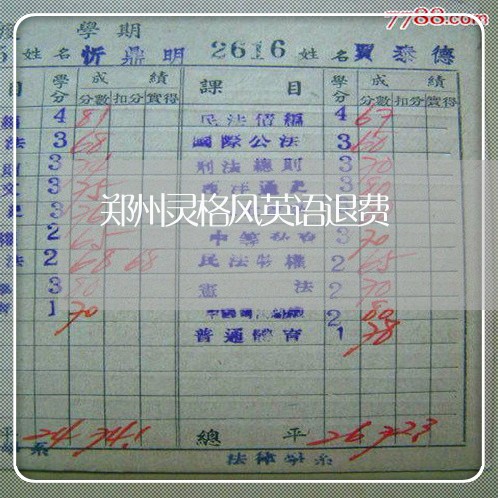 7788.com
學期
姓名 忻鼎明 2616 姓名 賈泰德
目 學分 成績 課目 學分 成績
分數 扣分 實得 分數 扣分 實得
4 81 民法債編 4 67
法 3 68 國際公法 3 60
3 刑法總則 3 70
3 75 西洋通史 3 80
郑州灵格风英语退费
2 65 3 70
法 2 68 68 民法物權 2 65
3 80 憲法 2 70
1 70 2 80
普通體育 1 78
24 74.1 總平 26 72.3
系 法律學系